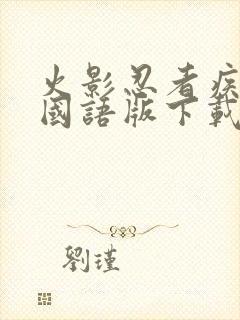 火影忍者疾
國語版下載
劉瑾